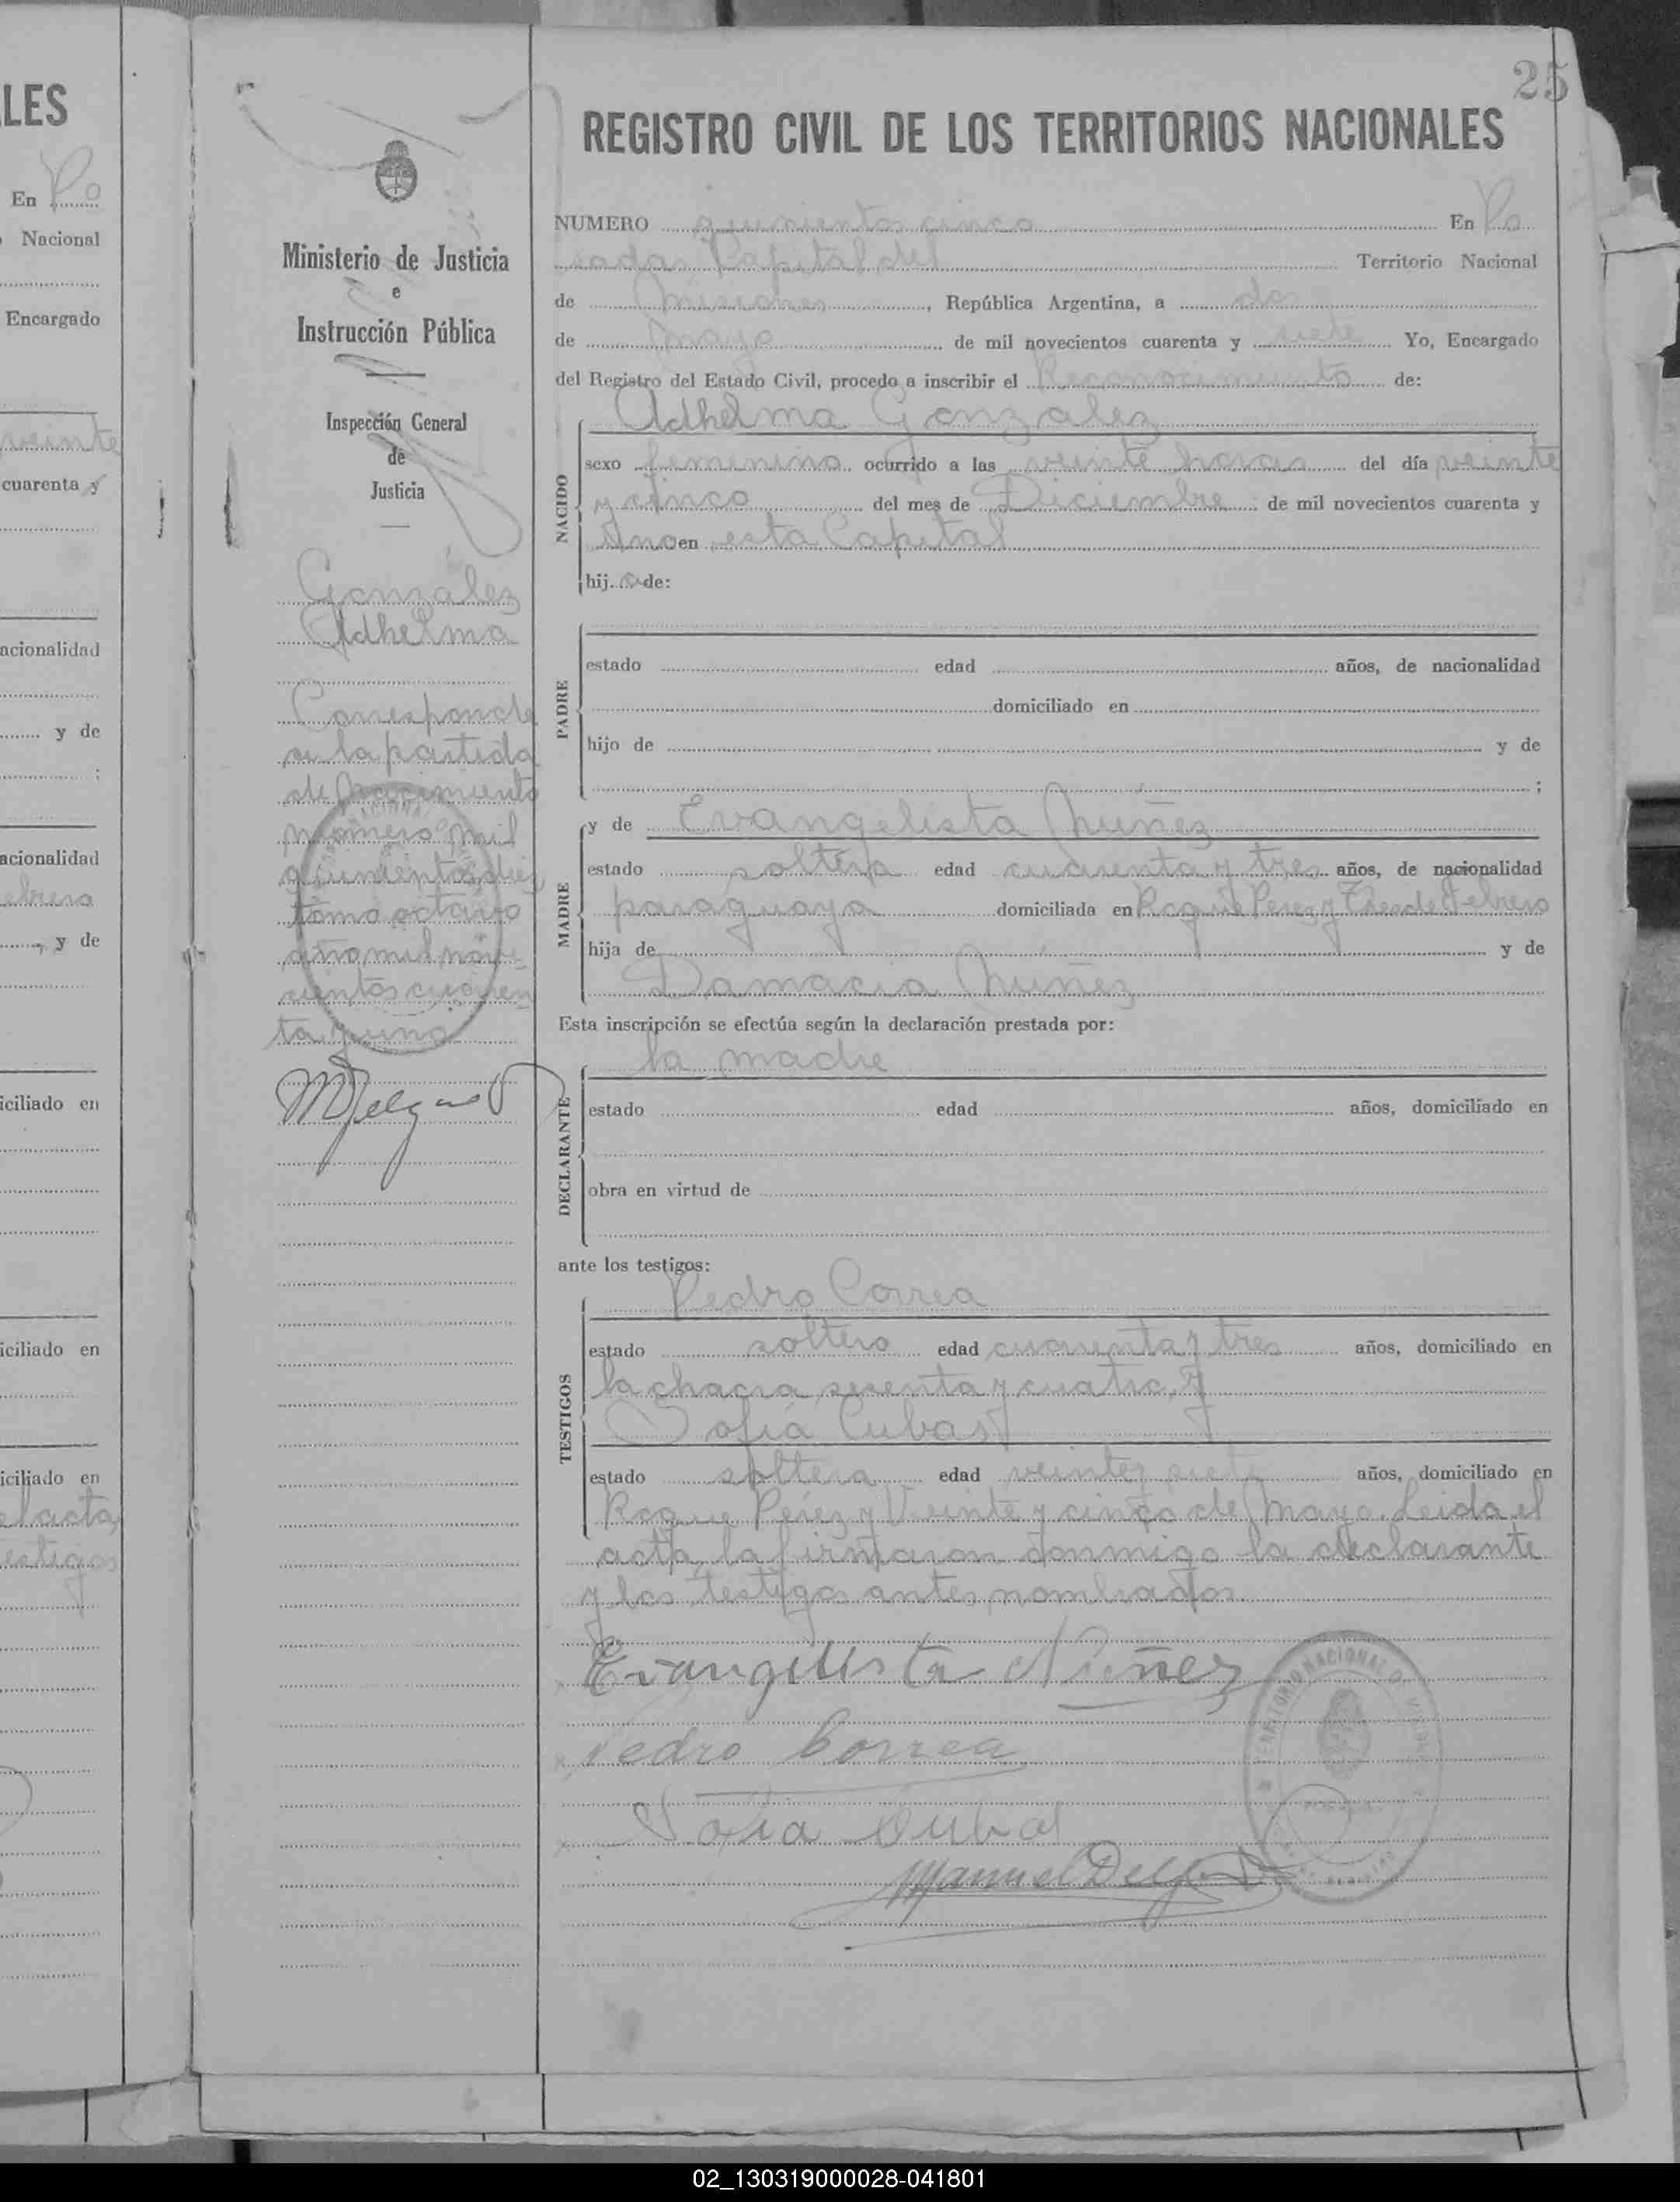 LES
En Po
Nacional
Encargado
veinte
cuarenta y
nacionalidad
y de
;
nacionalidad
Febrero
, y de
iciliado en
iciliado en
iciliado en
el acta
testigos
25
Ministerio de Justicia
e
Instrucción Pública
Inspección General
de
Justicia
Gonzalez
Adhelma
Corresponde
a la partida
de nacimiento
número mil
quinientos diez
tomo octavo
año mil nove-
cientos cuaren
ta y uno
REGISTRO CIVIL DE LOS TERRITORIOS NACIONALES
NUMERO quinientos cinco En Po
sadas Capital del Territorio Nacional
de Misiones, República Argentina, a dos
de Mayo de mil novecientos cuarenta y siete Yo, Encargado
del Registro del Estado Civil, procedo a inscribir el Reconocimiento de:
NACIDO
Adhelma Gonzalez
sexo femenino ocurrido a las veinte horas del día veinte
y cinco del mes de Diciembre de mil novecientos cuarenta y
uno en esta Capital
hij a de:
PADRE
estado edad años, de nacionalidad
domiciliado en
hijo de y de
;
MADRE
y de Evangelista Nuñez
estado soltera edad cuarenta y tres años, de nacionalidad
paraguaya domiciliada en Roque Perez y Tres de Febrero
hija de y de
Damacia Nuñez
Esta inscripción se efectúa según la declaración prestada por:
DECLARANTE
la madre
estado edad años, domiciliado en
obra en virtud de
ante los testigos:
TESTIGOS
Pedro Correa
estado soltero edad cuarenta y tres años, domiciliado en
la chacra sesenta y cuatro, y
Sofia Cubas
estado soltera edad veinte y siete años, domiciliado en
Roque Pérez y Veinte y cinco de Mayo. Leida el
acta, la firmaron conmigo la declarante
y los testigos antes nombrados.
Evangelista Nuñez
Pedro Correa
Sofia Cubas
Manuel Delgado
02_130319000028-041801